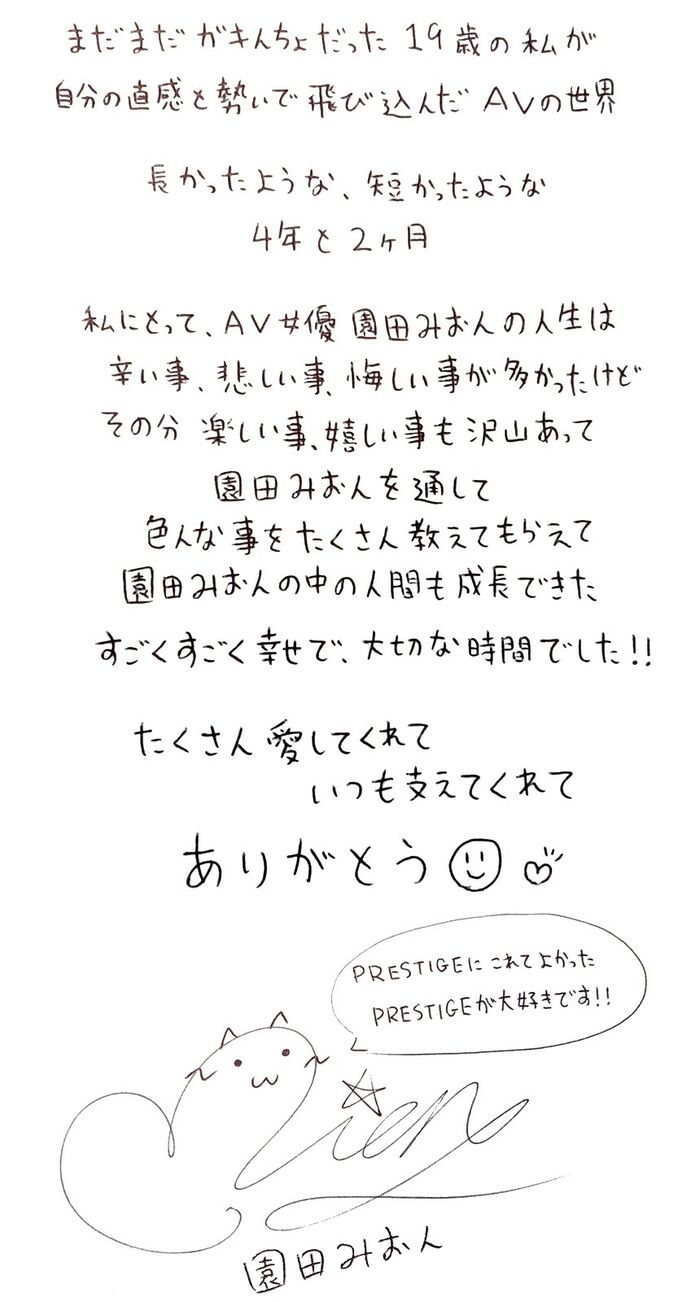 まだまだガキんちょだった 19歳の私が
自分の直感と勢いで飛び込んだ AVの世界
長かったような、短かったような
4年と2ヶ月
私にとって、AV女優 園田みおんの人生は
辛い事、悲しい事、悔しい事が多かったけど
その分 楽しい事、嬉しい事も沢山あって
園田みおんを通して
色んな事をたくさん教えてもらえて
園田みおんの中の人間も成長できた
すごくすごく幸せで、大切な時間でした!!
たくさん愛してくれて
いつも支えてくれて
ありがとう
PRESTIGEに これて よかった
PRESTIGEが大好きです!!
Mion
園田みおん